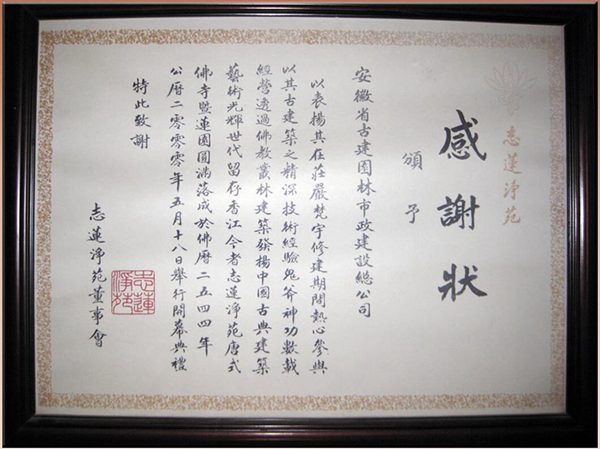 志蓮淨苑
感謝狀
頒予
安徽省古建園林市政建設總公司
以表揚其在莊嚴梵宇修建期間熱心參與
以其古建築之精深技術經驗鬼斧神功數載
經營透過佛教叢林建築發揚中國古典建築
藝術光輝世代留存香江今者志蓮淨苑唐式
佛寺暨蓮園圓滿落成於佛曆二五四四年
公曆二零零零年五月十八日舉行開幕典禮
特此致謝
志蓮淨苑董事會
志蓮淨苑